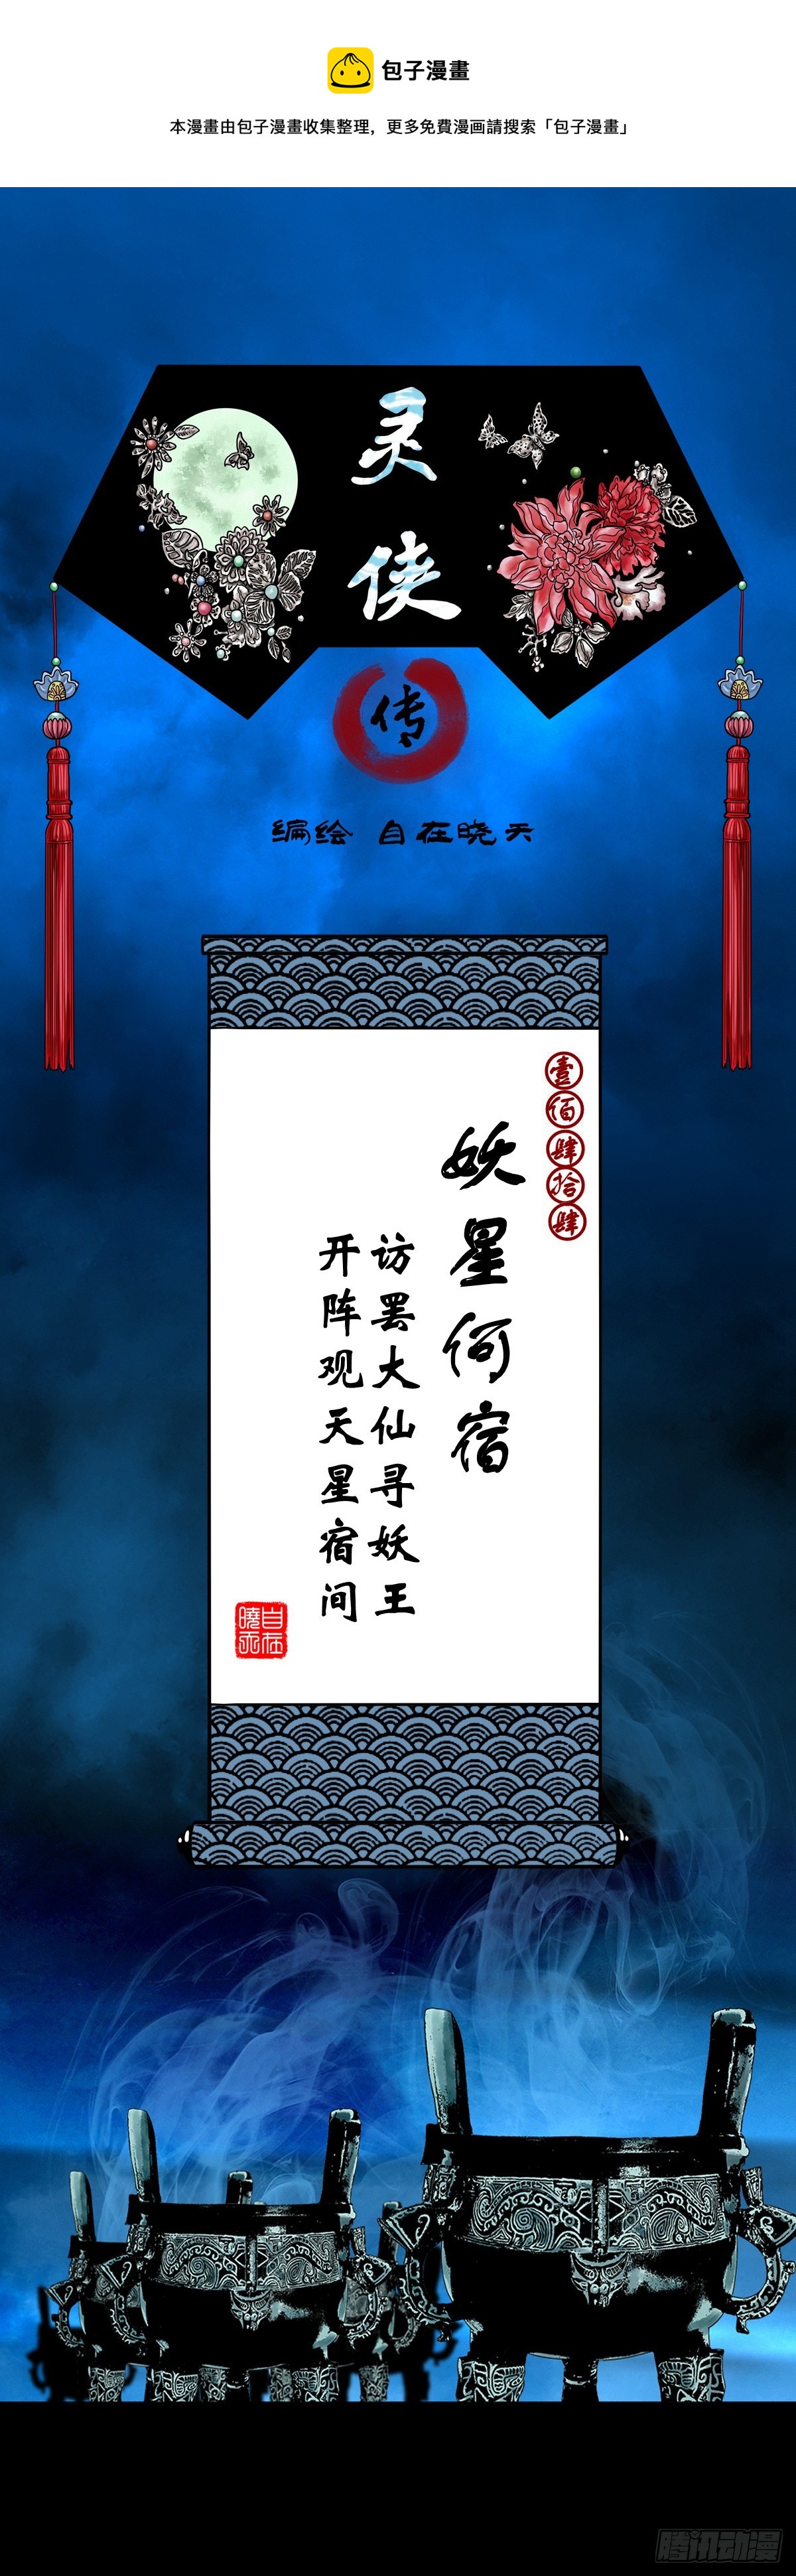 包子漫畫
本漫畫由包子漫畫收集整理，更多免費漫画請搜索「包子漫畫」
灵侠
传
编绘 自在晓天
壹佰肆拾肆
妖星何宿
访罢大仙寻妖王
开阵观天星宿间
自在曉天
腾讯动漫